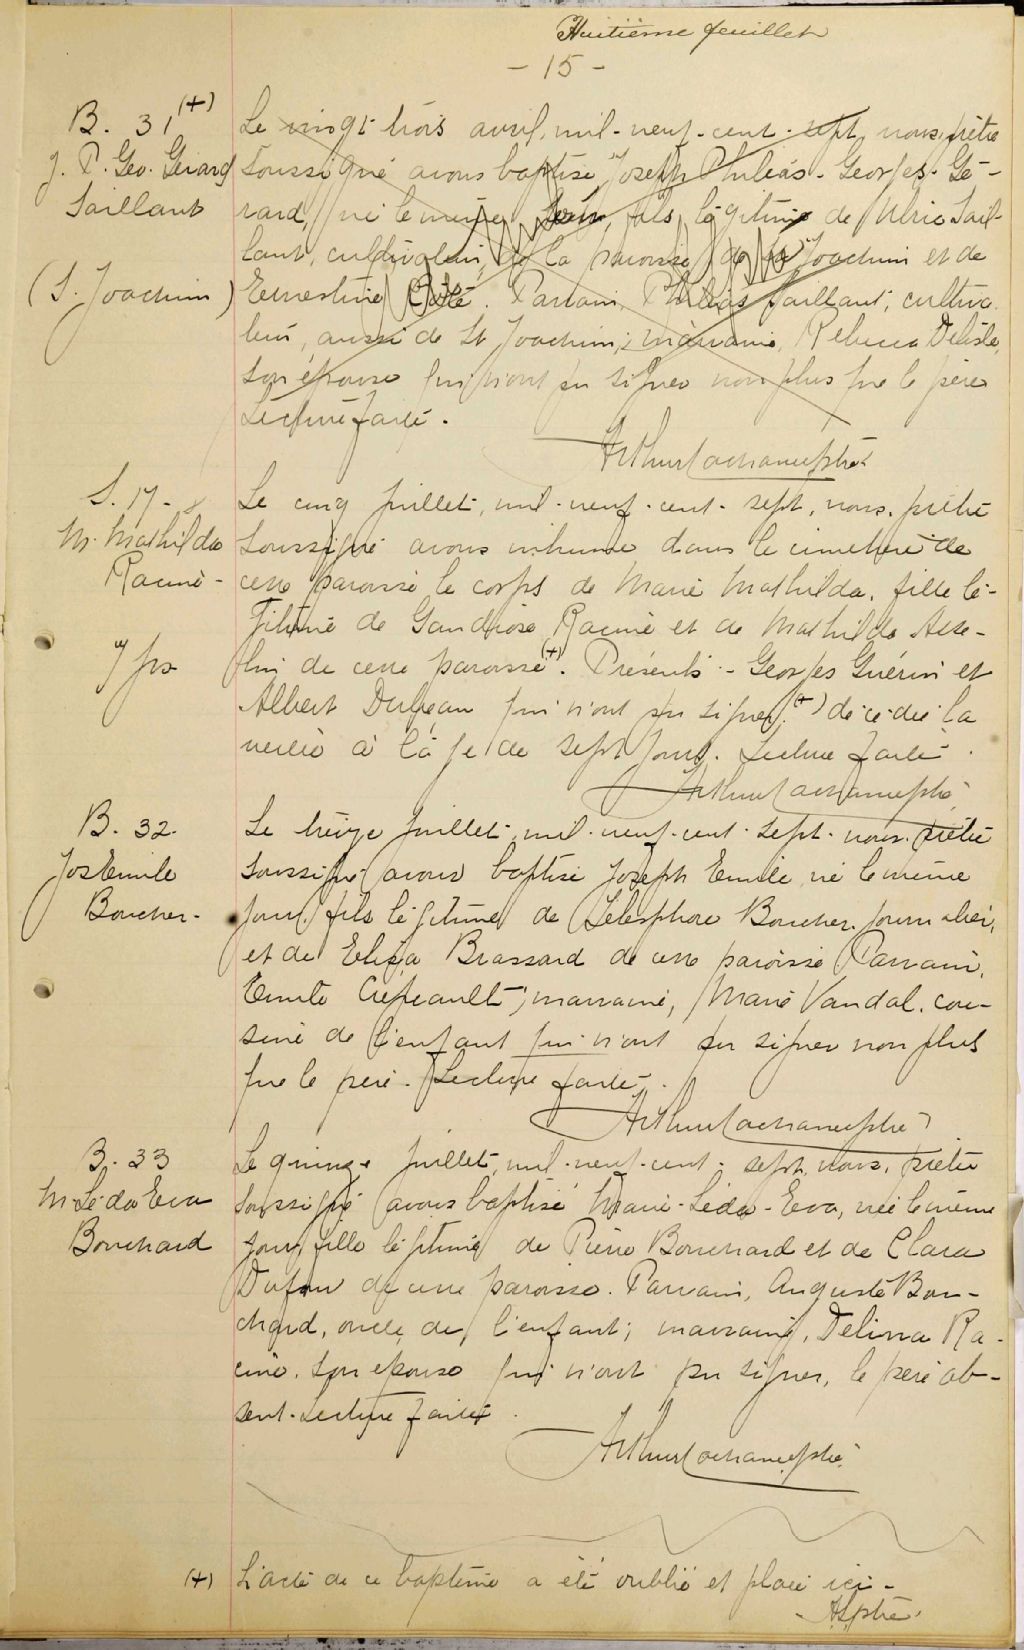 Huitième feuillet
- 15 -
B. 31 (+)
J. P. Geo. Gérard
Saillant
(S. Joachim)
Le vingt trois avril, mil-neuf-cent-sept, nous, prêtre
soussigné avons baptisé Joseph Philéas-Georges-Gé-
rard, né le même jour, fils légitime de Ulric Sail-
lant, cultivateur, de la paroisse de St Joachim et de
Ernestine Côté. Parrain, Philéas Saillant, cultiva-
teur, aussi de St Joachim; marraine, Rebecca Delisle,
son épouse qui n'ont pu signer non plus que le père
Lecture faite.
Arthur Lachance ptre
S. 17-
M. Mathilda
Racine-
7 jrs
Le cinq juillet, mil-neuf-cent-sept, nous, prêtre
soussigné avons inhumé dans le cimetière de
cette paroisse le corps de Marie Mathilda, fille lé-
gitime de Gaudiose Racine et de Mathilda Asse-
lin de cette paroisse (+). Présents - Georges Guérin et
Albert Dupeau qui n'ont pu signer. (+) décédée la
veille à l'âge de sept jours. Lecture faite.
Arthur Lachance ptre
B. 32-
Jos Emile
Boucher-
Le treize juillet, mil-neuf-cent-sept-nous-prêtre
soussigné avons baptisé Joseph Emile né le même
jour, fils légitime de Télesphore Boucher, journalier,
et de Eliza Brassard de cette paroisse Parrain,
Emile Crépeault; marraine, Marie Vandal, cou-
sine de l'enfant qui n'ont pu signer non plus
que le père-Lecture faite.
Arthur Lachance ptre
B. 33
M. Léda Eva
Bouchard
Le quinze juillet, mil-neuf-cent-sept, nous, prêtre
soussigné avons baptisé Marie-Léda-Eva, née le même
jour, fille légitime de Pierre Bouchard et de Clara
Dufour de cette paroisse. Parrain, Auguste Bou-
chard, oncle de l'enfant; marraine, Delima Ra-
cine, son épouse qui n'ont pu signer, le père ab-
sent-Lecture faite.
Arthur Lachance ptre
(+) L'acte de ce baptême a été oublié et placé ici-
- A L ptre.